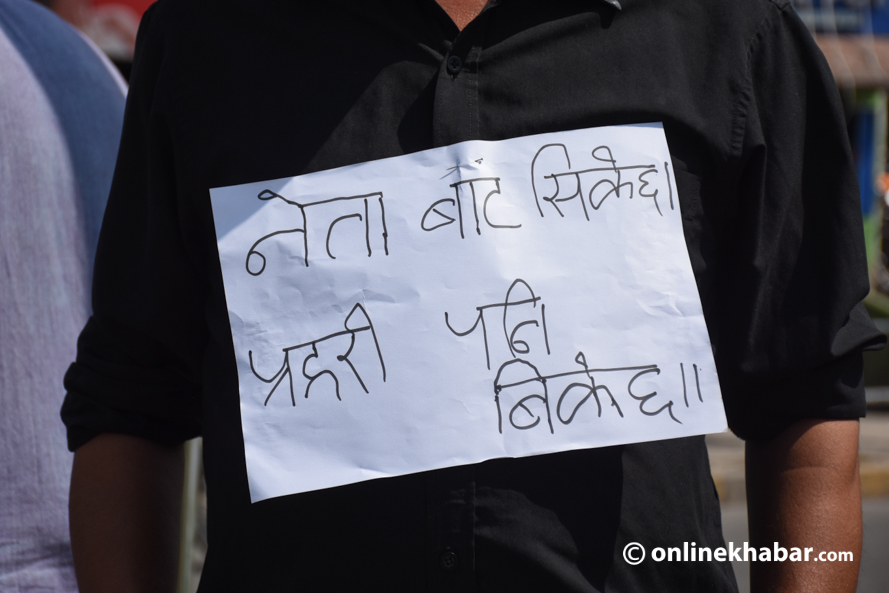 नेता बाट सिकेछ।
प्रहरी पनि
बिकेछ।।
© onlinekhabar.com